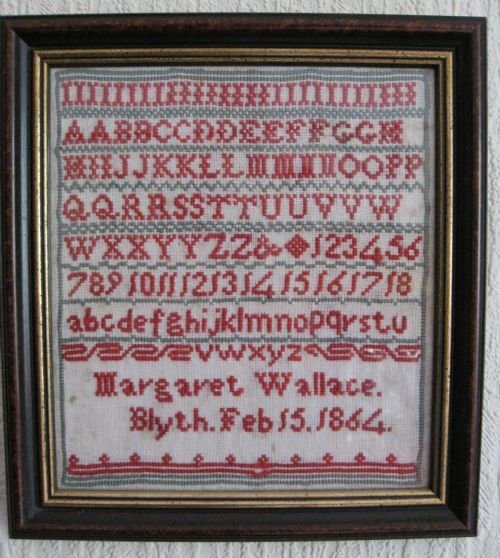 AABBCCDDEEFFGGH
HIIJJKKLLMMNNOOPP
QQRRSSTTUUVVW
WXXYYZZ& 123456
789 10 11 12 13 14 15 16 17 18
abcdefghijklmnopqrstu
vwxyz
Margaret Wallace.
Blyth. Feb 15. 1864.